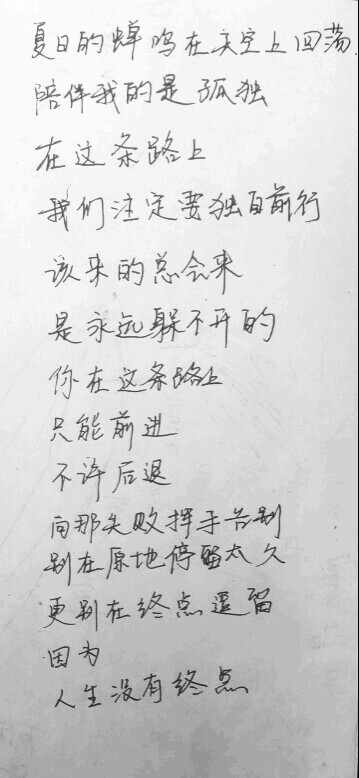 夏日的蝉鸣在天空上回荡
陪伴我的是孤独
在这条路上
我们注定要独自前行
该来的总会来
是永远躲不开的
你在这条路上
只能前进
不许后退
向那失败挥手告别
别在原地停留太久
更别在终点逗留
因为
人生没有终点